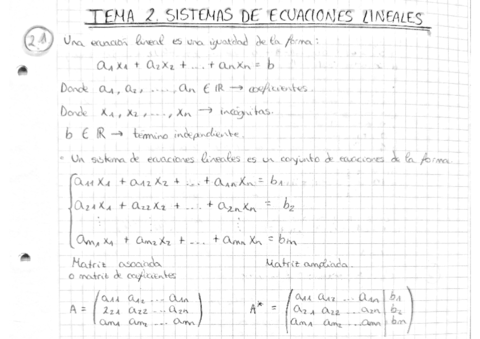 TEMA 2. SISTEMAS DE ECUACIONES LINEALES
2.1 Una ecuación lineal es una igualdad de la forma:
a₁x₁ + a₂x₂ + ... + aₙxₙ = b
Donde a₁, a₂, ...., aₙ ∈ ℝ → coeficientes.
Donde x₁, x₂, ..., xₙ → incógnitas.
b ∈ ℝ → término independiente.
· Un sistema de ecuaciones lineales es un conjunto de ecuaciones de la forma
a₁₁x₁ + a₁₂x₂ + ... + a₁ₙxₙ = b₁
a₂₁x₁ + a₂₂x₂ + ... + a₂ₙxₙ = b₂
aₘ₁x₁ + aₘ₂x₂ + ... + aₘₙxₙ = bₘ
Matriz asociada Matriz ampliada.
o matriz de coeficientes
a₁₁ a₁₂ ... a₁ₙ a₁₁ a₁₂ ... a₁ₙ | b₁
A = ( 2₂₁ a₂₂ ... a₂ₙ ) A* = ( a₂₁ a₂₂ ... a₂ₙ | b₂ )
aₘ₁ aₘ₂ ... aₘₙ aₘ₁ aₘ₂ ... aₘₙ | bₘ